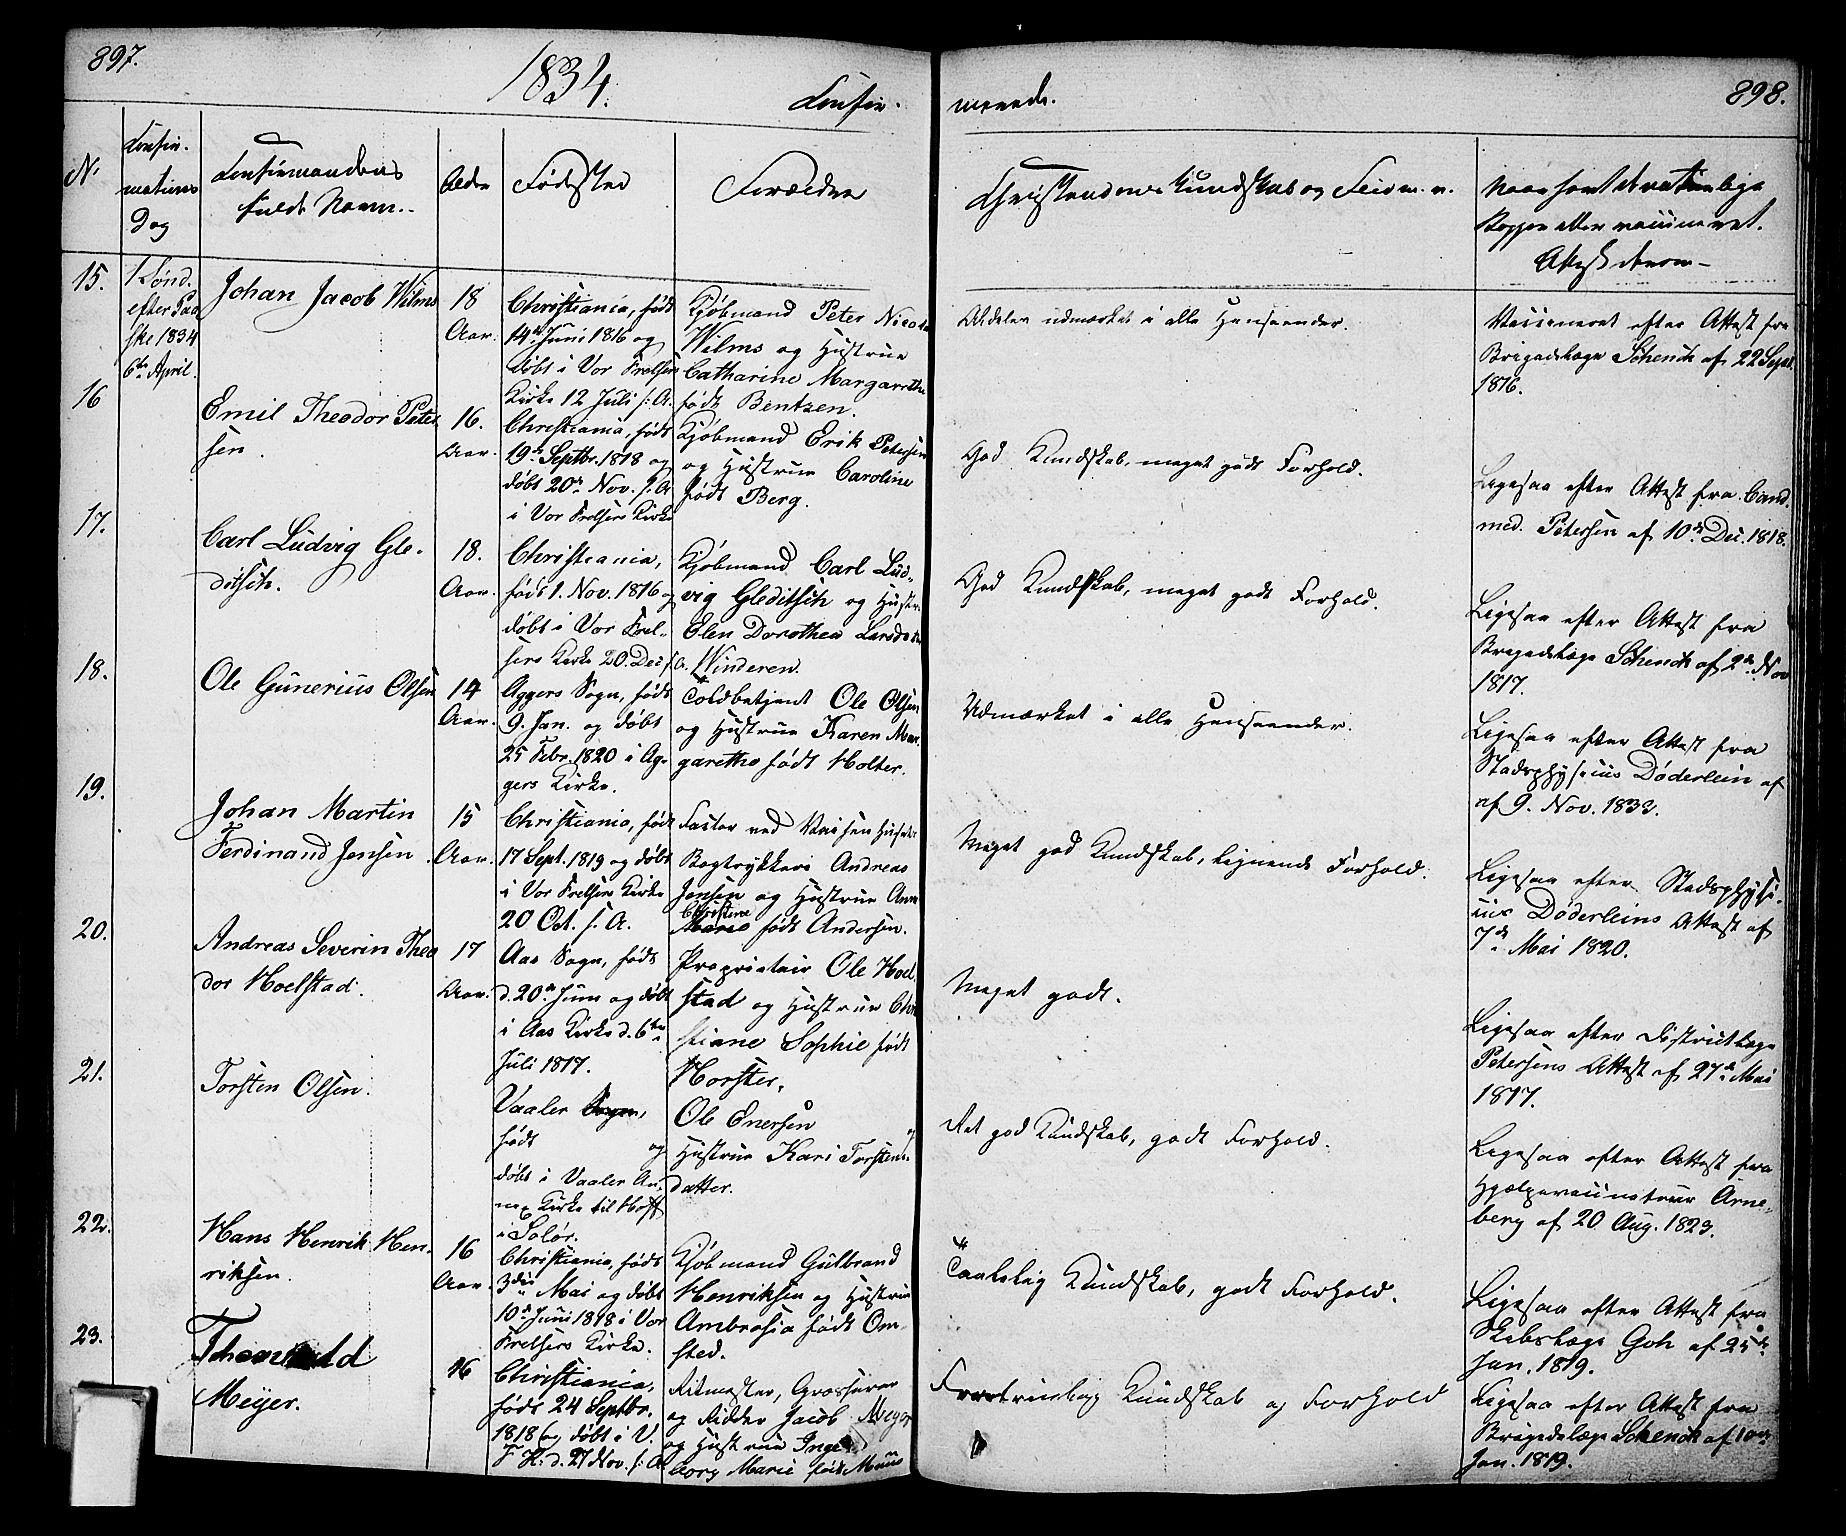 897.
1834.
Confir-
merede.
898.
N.
Confir-
mations
Dag
Confirmandens
fulde Navn.
Alder
Fødested
Forældre
Christendoms Kundskab og Flid m. v.
Naar samt det naturlige
Kopper eller vaccineret.
Attest derom
15.
1 Sønd.
efter Paa
ske 1834
6te April.
Johan Jacob Wilms
18
Aar.
Christiania, født
14de Juni 1816 og
døbt i Vor Frelsers
Kirke 12 Juli s. A.
Kjøbmand Peter Nicolai
Wilms og Hustrue
Catharine Margarethe
født Bentzen.
Aldeles udmærket i alle Henseender.
Vaccineret efter Attest fra
Brigadelæge Schenck af 22 Sept.
1816.
16
Emil Theodor Peter
sen.
16.
Aar.
Christiania, født
19de Septbr. 1818 og
døbt 20de Nov. s. A
i Vor Frelsers Kirke
Kjøbmand Erik Petersen
og Hustrue Caroline
født Berg.
God Kundskab, meget godt Forhold.
Ligesaa efter Attest fra Cand.
med. Petersen af 10de Dec. 1818.
17.
Carl Ludvig Gle-
ditsch.
18.
Aar.
Christiania,
født 1. Nov. 1816 og
døbt i Vor Frel-
sers Kirke 20. Dec s. A.
Kjøbmand Carl Lud-
vig Gleditsch og Hustr.
Elen Dorothea Larsdatter
Winderen.
God Kundskab, meget godt Forhold.
Ligesaa efter Attest fra
Brigadelæge Schenck af 2de Nov
1817.
18.
Ole Gunerius Olsen
14
Aar.
Aggers Sogn, født
9. Jan. og døbt
25 Febr. 1820 i Ag-
gers Kirke.
Toldbetjent Ole Olsen
og Hustrue Karen Mar-
garethe født Holter.
Udmærket i alle Henseender.
Ligesaa efter Attest fra
Stadsphysicus Døderlein af
af 9. Nov. 1833.
19.
Johan Martin
Ferdinand Jensen.
15
Aar.
Christiania, født
17 Sept. 1819 og døbt
i Vor Frelsers Kirke
20 Oct. s. A.
Faster ved Vaisenhuset
Bogtrykkeri Andreas
Jensen og Hustrue Ann
Christine
Marie født Andersen.
Meget god Kundskab, lignende Forhold.
Ligesaa efter Stadsphysi-
cus Døderleins Attest af
7de Mai 1820.
20.
Andreas Severin Theo
dor Hoelstad.
17
Aar.
Aas Sogn, født
d. 20de Juni og døbt
i Aas Kirke d. 6te
Juli 1817.
Proprietair Ole Hoel
stad og Hustrue Chri
stiane Sophie født
Horster.
Meget godt.
Ligesaa efter Districtslæge
Petersens Attest af 27de Mai
1817.
21.
Torsten Olsen.
Vaaler Sogn,
født og
døbt i Vaaler An-
nex Kirke til Hoff
i Solør.
Ole Enersen og
Hustrue Kari Torstens-
datter.
Ret god Kundskab, godt Forhold.
Ligesaa efter Attest fra
Hjælpevaccinateur Arne-
berg af 20 Aug. 1823.
22.
Hans Henrik Hen-
riksen.
16
Aar.
Christiania, født
3die Mai og døbt
10de Juni 1818 i Vor
Frelsers Kirke.
Kjøbmand Gulbrand
Henriksen og Hustrue
Ambrosia født Om-
sted.
Taalelig Kundskab, godt Forhold.
Ligesaa efter Attest fra
Skibslæge Goh af 25de
Jan. 1819.
23.
Thorvald
Meijer.
16
Christiania,
født 24 Septbr.
1818 og døbt i V.
F. K. d. 27 Nov. s. A.
Ritmester, Grosserer
og Ridder Jacob Meyer
og Hustrue Inge-
borg Marie født Muus
Fortrinlig Kundskab og Forhold
Ligesaa efter Attest fra
Brigadelæge Schenck af 10de
Jan. 1819.